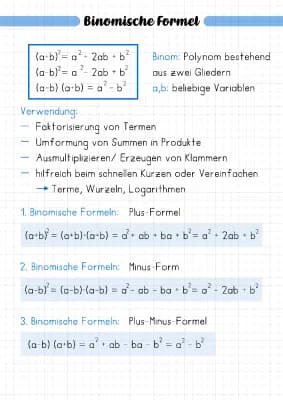 Binomische Formel
(a-b)² = a² - 2ab + b²
(a-b)² = a² - 2ab + b²
(a-b) (a+b) = a² - b²
Binom: Polynom bestehend
aus zwei Gliedern
a,b: beliebige Variablen
Verwendung:
— Faktorisierung von Termen
— Umformung von Summen in Produkte
— Ausmultiplizieren/ Erzeugen von Klammern
— hilfreich beim schnellen Kürzen oder Vereinfachen
→ Terme, Wurzeln, Logarithmen
1. Binomische Formeln: Plus-Formel
(a+b)² = (a+b)·(a+b) = a² + ab + ba + b² = a² + 2ab + b²
2. Binomische Formeln: Minus-Form
(a-b)² = (a-b)·(a-b) = a² - ab - ba + b² = a² - 2ab + b²
3. Binomische Formeln: Plus-Minus-Formel
(a-b) (a+b) = a² + ab - ba - b² = a² - b²